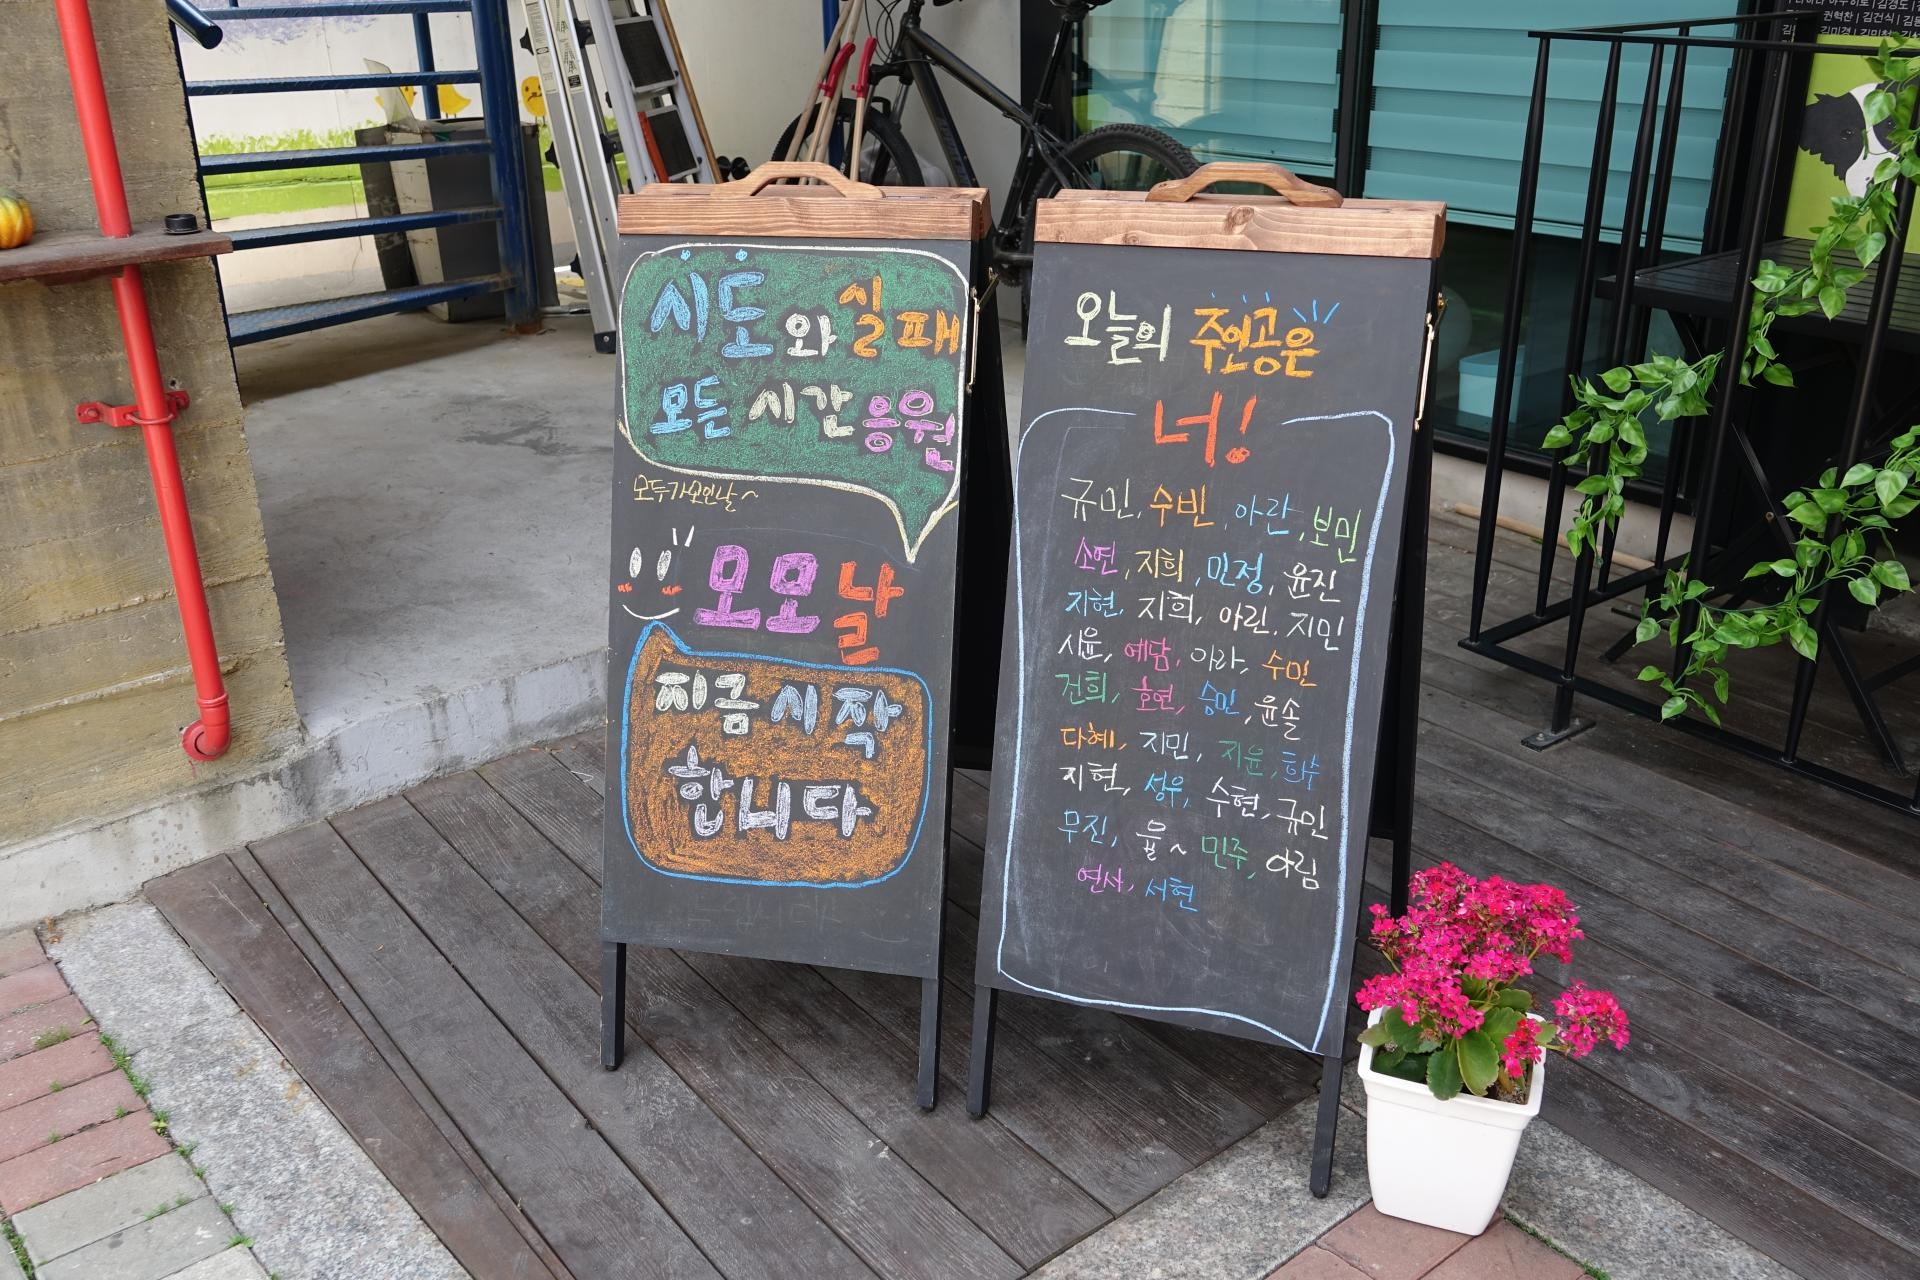 시도와 실패
모든 시간 응원
모두가 모인 날~
모모날
지금 시작
합니다
오늘의 주인공은
너!
규민, 수빈, 아란, 보민
소연, 지희, 민정, 윤진
지현, 지희, 아린, 지민
시윤, 예담, 아라, 수민
건희, 호연, 승민, 윤솔
다혜, 지민, 지윤, 희수
지현, 성우, 수현, 규민
무진, 율~ 민주, 아림
연사, 서현
권혁찬 | 김건식 | 김